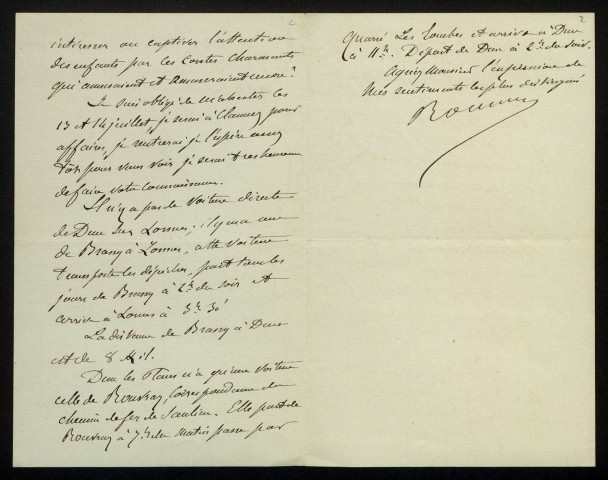 2
intéresser ou captiver l'attention
des enfants par les contes charmants
qui amusaient et amuseraient encore ?
Je suis obligé de m'absenter les
13 et 14 juillet, je serai à Clamecy pour
affaires, je rentrerai je l'espère assez
tôt pour vous voir je serai très heureux
de faire votre connaissance.
Il n'y a pas de voiture directe
de Dun sur Lormes ; il y en a une
de Brassy à Lormes, cette voiture
transporte les dépêches, part tous les
jours de Brassy à 2h du soir et
arrive à Lormes à 3h 30'
La distance de Brassy à Dun
est de 8 Kil.
Dun les Places n'a qu'une voiture
celle de Rouvray, Correspondance du
chemin de fer de Saulieu. Elle part de
Rouvray à 7h du matin passe par
2
Quarré Les Tombes et arrive à Dun
à 11h. Départ de Dun à 2h du soir.
Agréez Monsieur l'expression de
mes sentiments les plus distingués